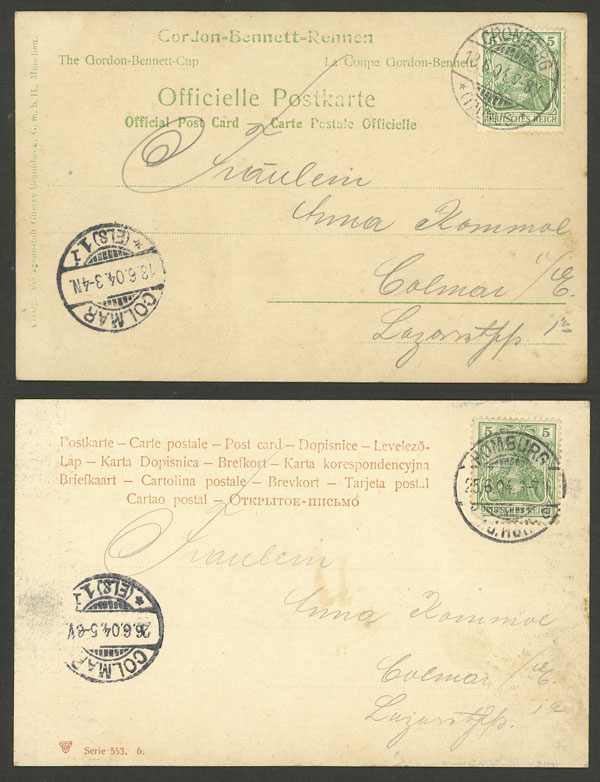 Gordon-Bennett-Rennen
The Gordon-Bennett-Cup La Coupe Gordon-Bennett
Officielle Postkarte
Official Post Card – Carte Postale Officielle
CRONBERG
5
DEUTSCHES REICH
Fräulein
Anna Kommoe
Colmar i/E.
COLMAR
* (ELS) 1.
18.6.04.3-4N.
Postkarte – Carte postale – Post card – Dopisnice – Levelező-
Lap – Karta Dopisnica – Brefkort – Karta korespondencyjna
Briefkaart – Cartolina postale – Brevkort – Tarjeta postal
Cartao postal – Открытое-письмó
5 5
HOMBURG
25.6.04.
DEUTSCHES REICH
Fräulein
Anna Kommoe
Colmar i/E
COLMAR
* (ELS) 1.
26.6.04.5-6V.
Serie 553. 6.